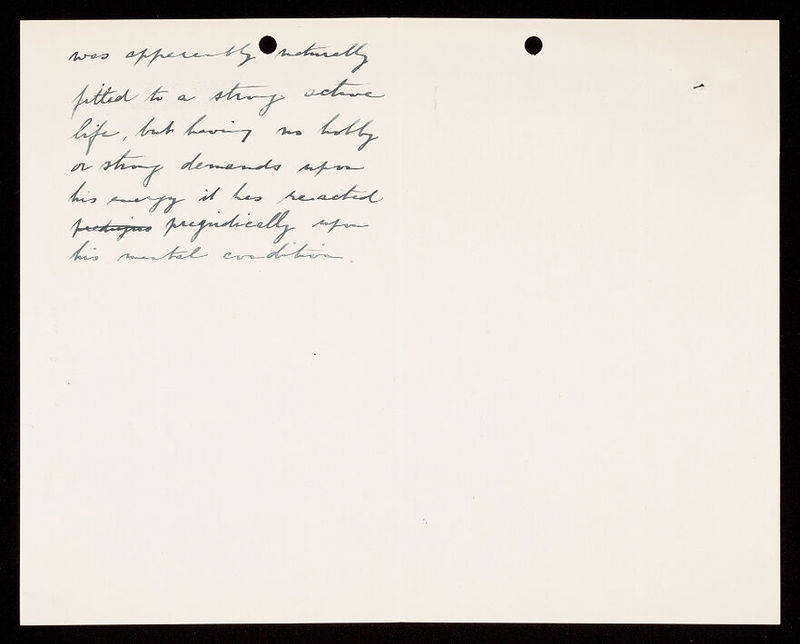 was apparently naturally
fitted to a strong active
life, but having no hobby
or strong demands upon
his energy it has reacted
prejudically upon
his mental condition.